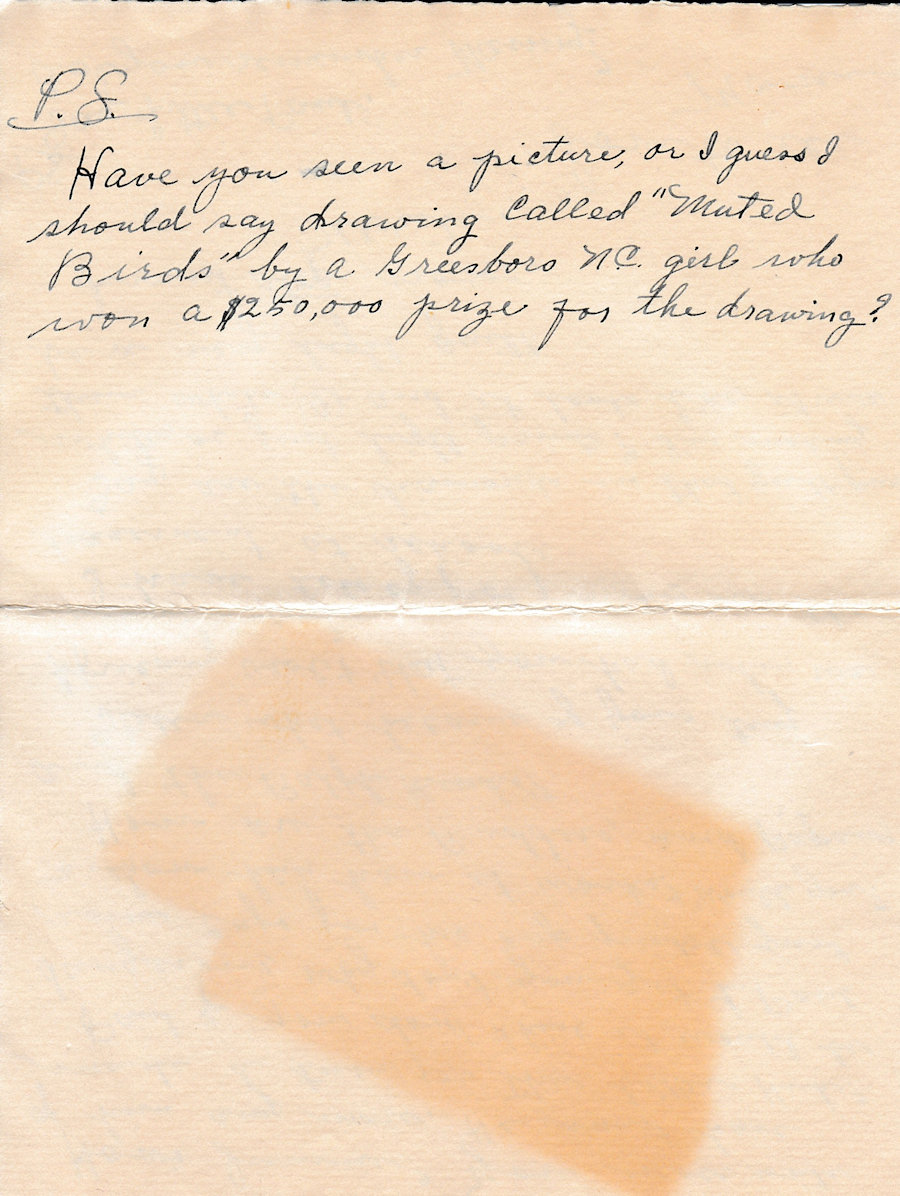 P.S.
Have you seen a picture, or I guess I
should say drawing called "Muted
Birds" by a Greesboro N.C. girl who
won a $250,000 prize for the drawing?